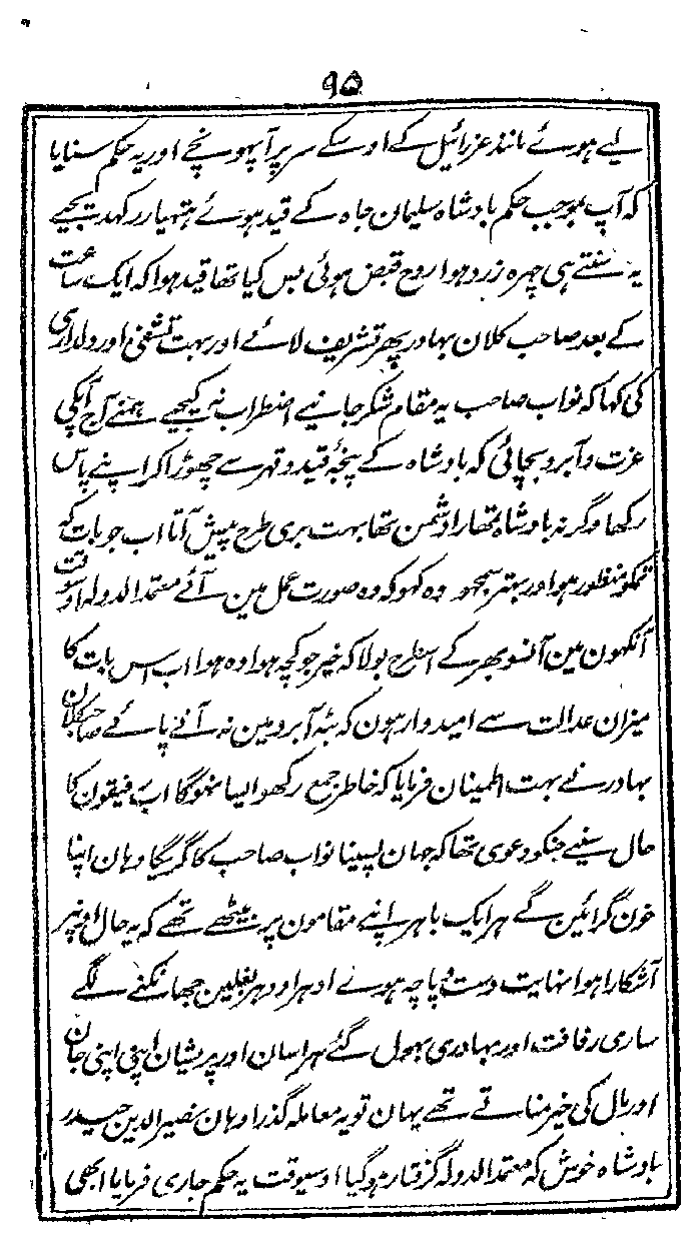 ۹۵
لیے ہوئے مانند عزرائیل کے اوسکے سر پر آپہونچے اور یہ حکم سنایا
کہ آپ بموجب حکم بادشاہ سلیمان جاہ کے قید ہوئے ہتھیار رکھدیجیے
یہ سنتے ہی چہرہ زرد ہوا روح قبض ہوئی بس کیا تھا قید ہوا کہ ایک ساعت
کے بعد صاحب کلان بہادر پھر تشریف لائے اور بہت تشفی اور دلداری
کی کہا کہ نواب صاحب یہ مقام شکر جانیے اضطراب نہ کیجیے ہمنے آج آپکی
عزت و آبرو بچائی کہ بادشاہ کے پنجۂ قید و قہر سے چھوڑا کر اپنے پاس
رکھا وگرنہ بادشاہ تمھارا دشمن تھا بہت بری طرح پیش آتا اب جو بات کہ
تمکو منظور ہو اور بہتر سمجھو وہ کہو کہ وہ صورت عمل مین آئے معتمد الدولہ اوسوقت
آنکھون مین آنسو بھر کے اسطرح بولا کہ خیر جو کچھ ہوا وہ ہوا اب اس بات کا
میزان عدالت سے امیدوار ہون کہ بٹہ آبرو مین نہ آنے پائے صاحبکلان
بہادر نے بہت اطمینان فرمایا کہ خاطر جمع رکھو ایسا نہوگا اب رفیقون کا
حال سنیے جنکو دعوی تھا کہ جہان پسینا نواب صاحب کا گریگا وہان اپنا
خون گرائین گے ہر ایک باہر اپنے مقامون پر بیٹھے تھے کہ یہ حال اونپر
آشکارا ہوا نہایت دست و پاچہ ہوئے ادہر اودہر بغلین جھانکنے لگے
ساری رفاقت اور بہادری بھول گئے ہراسان اور پریشان اپنی اپنی جان
اور مال کی خیر مناتے تھے یہان تو یہ معاملہ گذرا وہان نصیر الدین حیدر
بادشاہ خوش کہ معتمد الدولہ گرفتار ہوگیا اوسیوقت یہ حکم جاری فرمایا ابھی